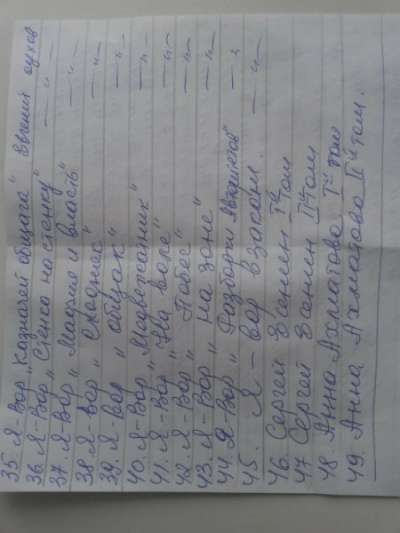 35. Я-Вор „Казначей общага" Евгений Сухов
36. Я-Вор „Стенка на стенку" —„—
37. Я-Вор „Мафия и власть" —„—
38. Я-Вор „Сходняк" —„—
39. Я-вор „общак" —„—
40. Я-Вор „Медвежатник" —„—
41. Я-Вор „На воле" —„—
42. Я-Вор „Побег" —„—
43. Я-Вор „на зоне" —„—
44. Я-Вор „Разборки авторитетов" —„—
45. Я-вор в законе. —„—
46. Сергей Есенин Iй том
47 Сергей Есенин IIй том
48. Анна Ахматова Iй том
49. Анна Ахматова IIй том.